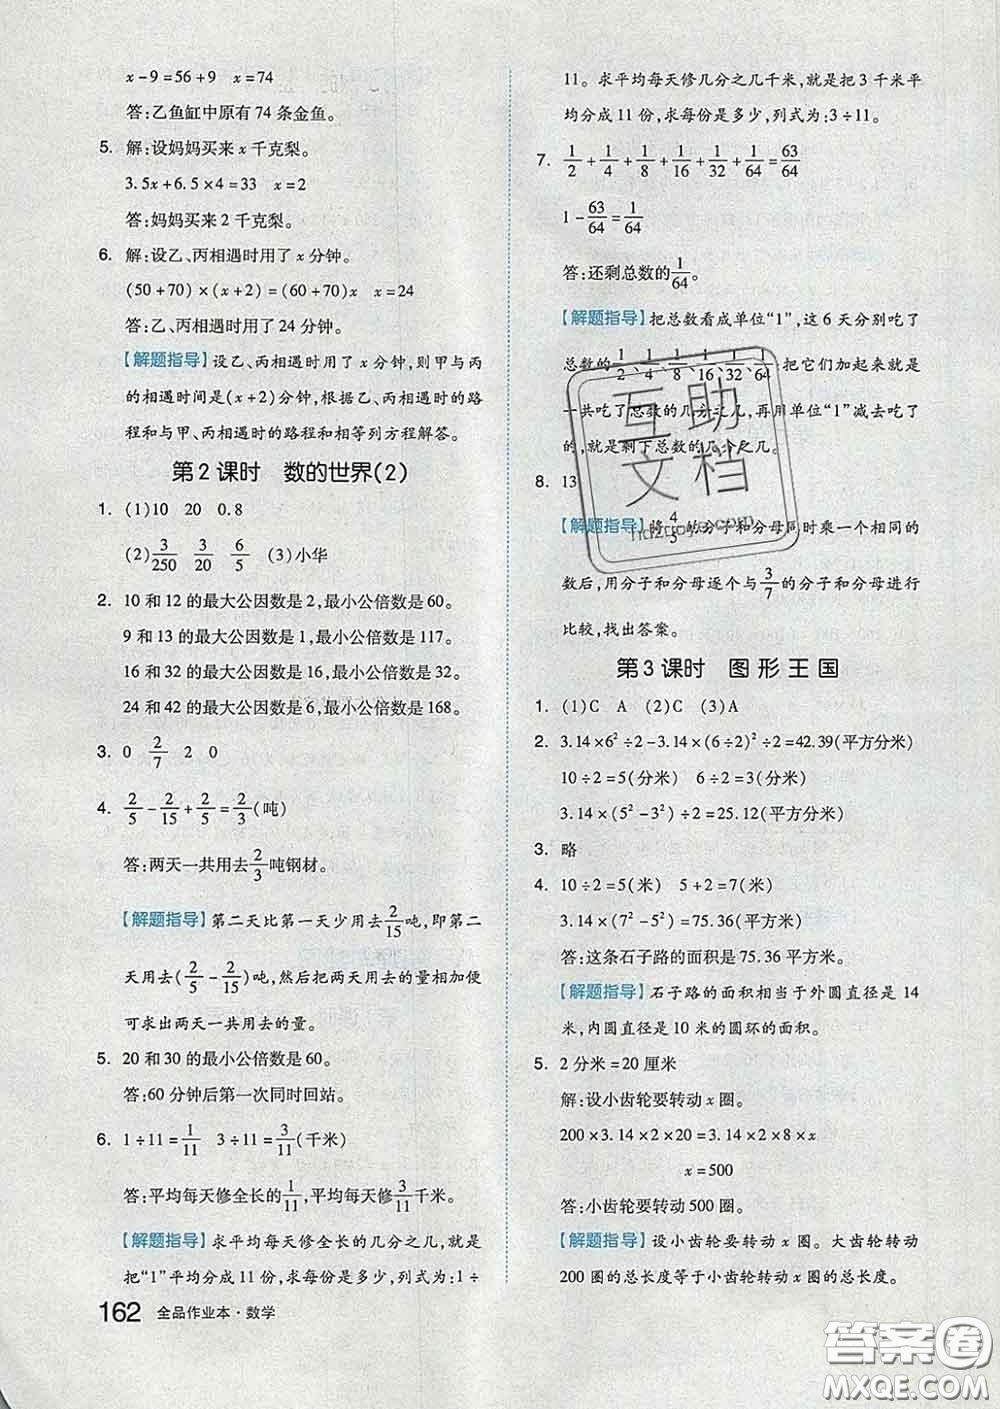 x-9=56+9 x=74
答:乙鱼缸中原有 74 条金鱼。
5. 解:设妈妈买来 x 千克梨。
3.5x+6.5×4=33 x=2
答:妈妈买来 2 千克梨。
6. 解:设乙、丙相遇时用了 x 分钟。
(50+70)×(x+2)=(60+70)x x=24
答:乙、丙相遇时用了 24 分钟。
【解题指导】设乙、丙相遇时用了 x 分钟,则甲与丙
的相遇时间是(x+2)分钟,根据乙、丙相遇时的路
程和与甲、丙相遇时的路程和相等列方程解答。
第 2 课时 数的世界(2)
1. (1)10 20 0.8
(2)3/250 3/20 6/5 (3)小华
2. 10 和 12 的最大公因数是 2,最小公倍数是 60。
9 和 13 的最大公因数是 1,最小公倍数是 117。
16 和 32 的最大公因数是 16,最小公倍数是 32。
24 和 42 的最大公因数是 6,最小公倍数是 168。
3. 0 2/7 2 0
4. 2/5-2/15+2/5=2/3(吨)
答:两天一共用去2/3吨钢材。
【解题指导】第二天比第一天少用去2/15吨,即第二
天用去(2/5-2/15)吨,然后把两天用去的量相加便
可求出两天一共用去的量。
5. 20 和 30 的最小公倍数是 60。
答:60 分钟后第一次同时回站。
6. 1÷11=1/11 3÷11=3/11(千米)
答:平均每天修全长的1/11,平均每天修3/11千米。
【解题指导】求平均每天修全长的几分之几,就是
把“1”平均分成 11 份,求每份是多少,列式为:1÷
162 全品作业本·数学
11。求平均每天修几分之几千米,就是把 3 千米平
均分成 11 份,求每份是多少,列式为:3÷11。
7. 1/2+1/4+1/8+1/16+1/32+1/64=63/64
1-63/64=1/64
答:还剩总数的1/64。
【解题指导】把总数看成单位“1”,这 6 天分别吃了
总数的1/2、1/4、1/8、1/16、1/32、1/64,把它们加起来就是
一共吃了总数的几分之几,再用单位“1”减去吃了
的,就是剩下总数的几分之几。
8. 13
【解题指导】将4/5的分子和分母同时乘一个相同的
数后,用分子和分母逐个与3/7的分子和分母进行
比较,找出答案。
第 3 课时 图形王国
1. (1)C A (2)C (3)A
2. 3.14×6²÷2-3.14×(6÷2)²÷2=42.39(平方分米)
10÷2=5(分米) 6÷2=3(分米)
3.14×(5²-3²)÷2=25.12(平方分米)
3. 略
4. 10÷2=5(米) 5+2=7(米)
3.14×(7²-5²)=75.36(平方米)
答:这条石子路的面积是 75.36 平方米。
【解题指导】石子路的面积相当于外圆直径是 14
米,内圆直径是 10 米的圆环的面积。
5. 2 分米=20 厘米
解:设小齿轮要转动 x 圈。
200×3.14×2×20=3.14×2×8×x
x=500
答:小齿轮要转动 500 圈。
【解题指导】设小齿轮要转动 x 圈。大齿轮转动
200 圈的总长度等于小齿轮转动 x 圈的总长度。
互助
文档
答案圈
MXQE.COM